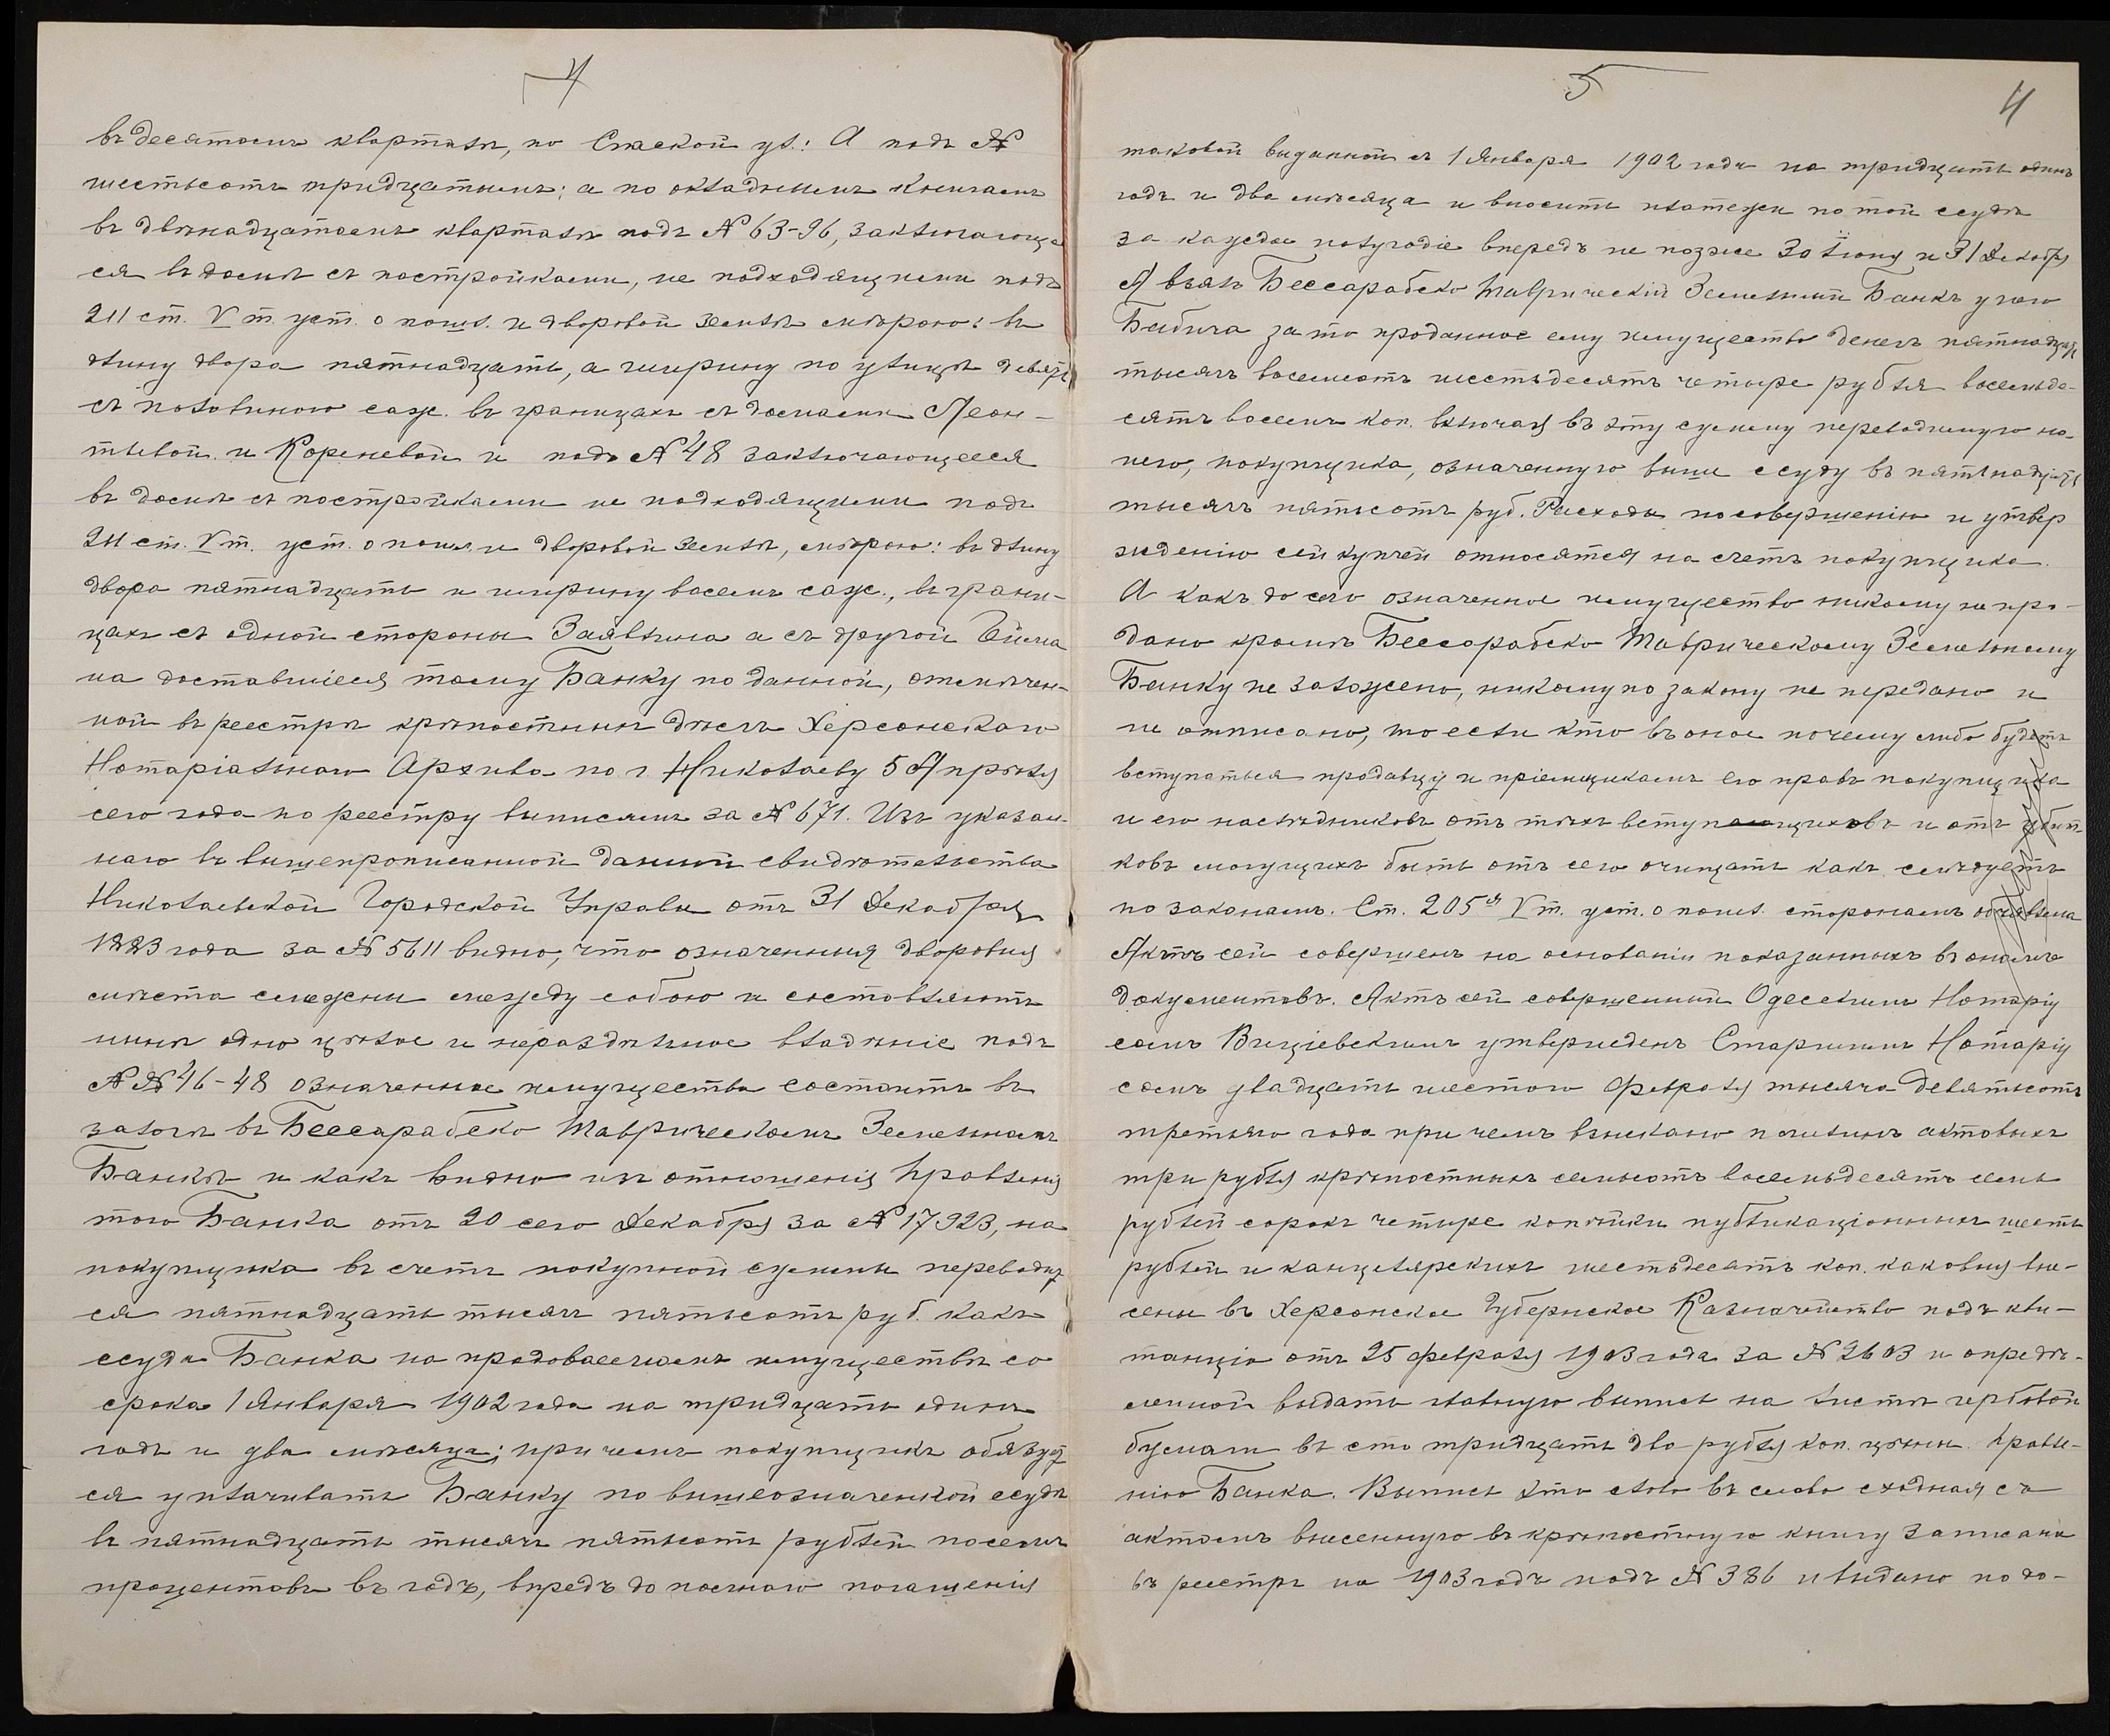 4
въ десятомъ кварталѣ, по Спаской ул.: А подъ №
шестьсотъ тридцатымъ; а по окладнымъ книгамъ
въ двѣнадцатомъ кварталѣ подъ № 63-96, заключающа
ся въ домѣ съ постройками, не подходящими подъ
211 ст. V т. уст. о пошл. и дворовой землѣ мѣрою: въ
длину двора пятнадцать, а ширину по улицѣ девять
съ половиною саж. въ границахъ съ домами Леон-
тьевой и Кореневой и подъ № 48 заключающееся
въ домѣ съ постройками не подходящими подъ
211 ст. V т. уст. о пошл. и дворовой землѣ, мѣрою: въ длину
двора пятнадцать и ширину восемь саж., въ грани-
цахъ съ одной стороны а съ другой
на доставшіеся тому Банку по данной, отмѣчен-
ной въ реестрѣ крѣпостныхъ дѣлъ Херсонскаго
Нотаріальнаго Архива по г. Николаеву 5 Апрѣля
сего года по реестру выписямъ за № 671. Изъ указан-
наго въ вышепрописанной данной свидѣтельства
Николаевской Городской Управы отъ 31 Декабря
1883 года за № 5611 видно, что означенныя дворовыя
мѣста смежны между собою и составляютъ
нынѣ одно цѣлое и нераздѣльное владѣніе подъ
№№ 46-48 означенное имущество состоитъ въ
залогѣ въ Бессарабско Таврическомъ Земельномъ
Банкѣ и какъ видно изъ отношенія Правленія
того Банка отъ 20 сего Декабря за № 17923, на
покупщика въ счетъ покупной суммы переводит
ся пятнадцать тысячъ пятьсотъ руб. какъ
ссуда Банка на продаваемомъ имуществѣ со
срока 1 Января 1902 года на тридцать одинъ
годъ и два мѣсяца; при чемъ покупщикъ обязует
ся уплачивать Банку по вышеозначенной ссудѣ
въ пятнадцать тысячъ пятьсотъ рублей по семи
процентовъ въ годъ, впредъ до полнаго погашенія
5
4
таковой выданной съ 1 Января 1902 года на тридцать одинъ
годъ и два мѣсяца и вносить платежи по той ссудѣ
за каждое полугодіе впередъ не позже 30 Іюня и 31 Декабря
А взялъ Бессарабско Таврическій Земельный Банкъ у него
Бабича за то проданное ему имущество денегъ пятнадцать
тысячъ восемьсотъ шестьдесятъ четыре рубля восемьде-
сятъ восемь коп. включая въ эту сумму переводимую на
него, покупщика, означенную выше ссуду въ пятнадцать
тысячъ пятьсотъ руб. Расходы по совершенію и утвер
жденію сей купчей относятся на счетъ покупщика.
А какъ до сего означенное имущество никому не про-
дано кромѣ Бессарабско Таврическому Земельному
Банку не заложено, никому по закону не передано и
не отписано, то если кто въ оное почему либо будетъ
вступаться продавцу и пріемщикамъ его правъ покупщика
и его наслѣдниковъ отъ тѣхъ вступающиковъ и отъ убыт
ковъ могущихъ быть отъ сего очищать какъ слѣдуетъ
по законамъ. Ст. 205я V т. уст. о пошл. сторонамъ объявлена
Актъ сей совершенъ на основаніи показанныхъ въ ономъ
документовъ. Актъ сей совершенный Одесскимъ Нотаріу
сомъ утвержденъ Старшимъ Нотаріу
сомъ двадцать шестого Февраля тысяча девятьсотъ
третьяго года при чемъ взыскано пошлинъ актовыхъ
три рубля крѣпостныхъ семьсотъ восемьдесятъ семь
рублей сорокъ четыре копѣйки публикаціонныхъ шесть
рублей и канцелярскихъ шестьдесятъ коп. каковыя вне-
сены въ Херсонское Губернское Казначейство подъ кви-
танціо отъ 25 Февраля 1903 года за № 2603 и опредѣ-
леной выдать главную выпись на листѣ гербовой
бумаги въ сто тридцать два рубля коп. цѣны Правле-
нію Банка. Выпись эта слово въ слово сходная съ
актомъ внесенную въ крѣпостную книгу записана
въ реестръ на 1903 годъ подъ № 386 и выдано по до-